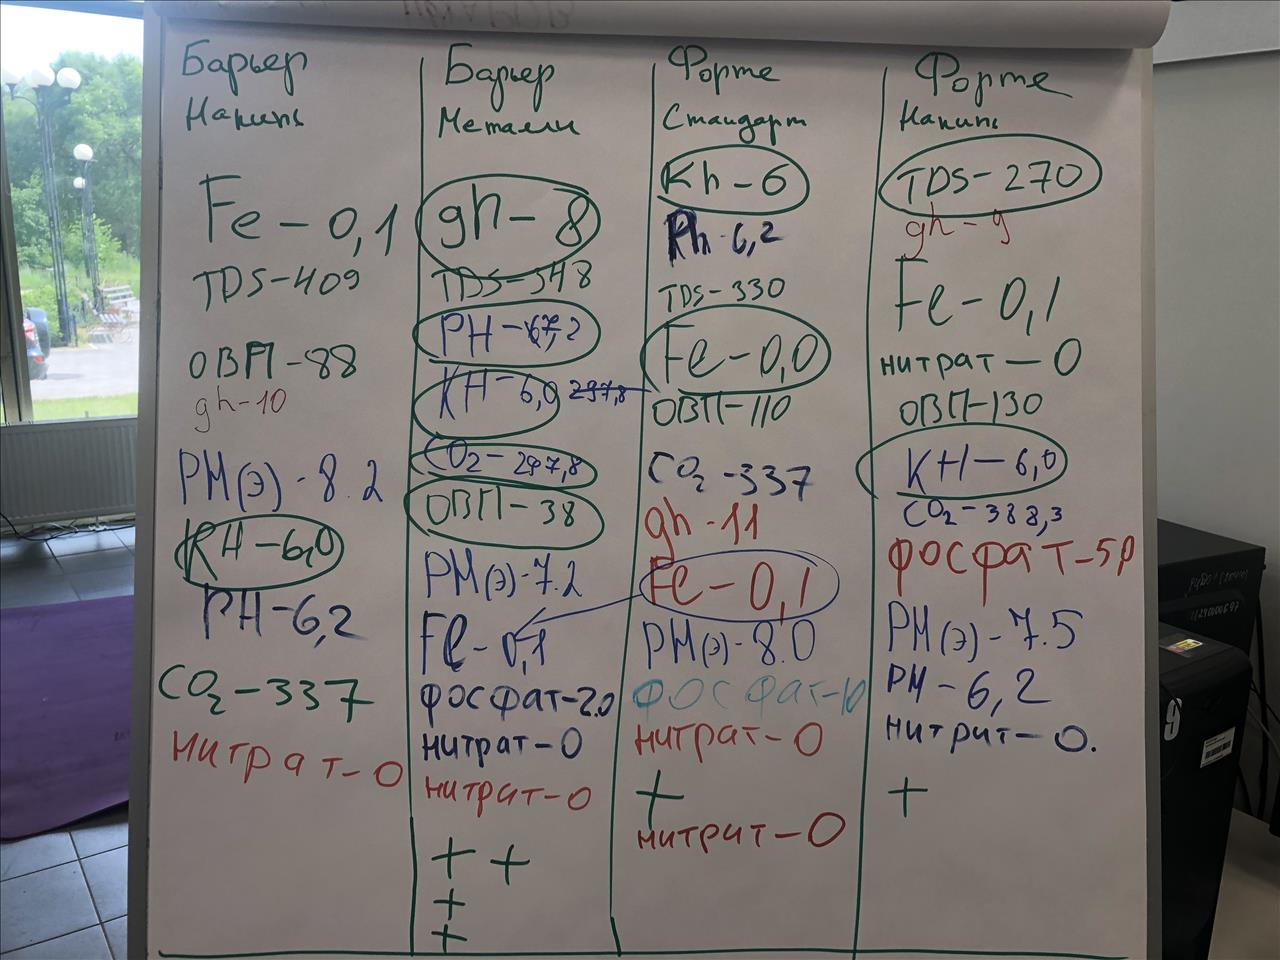 Барьер
Накипь
Fe-0,1
TDS-409
ОВП-88
gh-10
PM(э)-8.2
KH-6,0
PH-6,2
CO2-337
нитрат-0
Барьер
Металл
gh-8
TDS-348
PH-7,2
KH-6,0 297,8
CO2-297,8
ОВП-38
PM(э)-7.2
Fe-0,1
фосфат-2.0
нитрат-0
нитрат-0
+ +
+
+
Форте
Стандарт
Kh-6
Ph-6,2
TDS-330
Fe-0,0
ОВП-110
CO2-337
gh-11
Fe-0,1
PM(э)-8.0
фосфат-10
нитрат-0
+
нитрит-0
Форте
Накипь
TDS-270
gh-9
Fe-0,1
нитрат-0
ОВП-130
KH-6,0
CO2-388,3
фосфат-5
PM(э)-7.5
PM-6,2
нитрит-0.
+
9